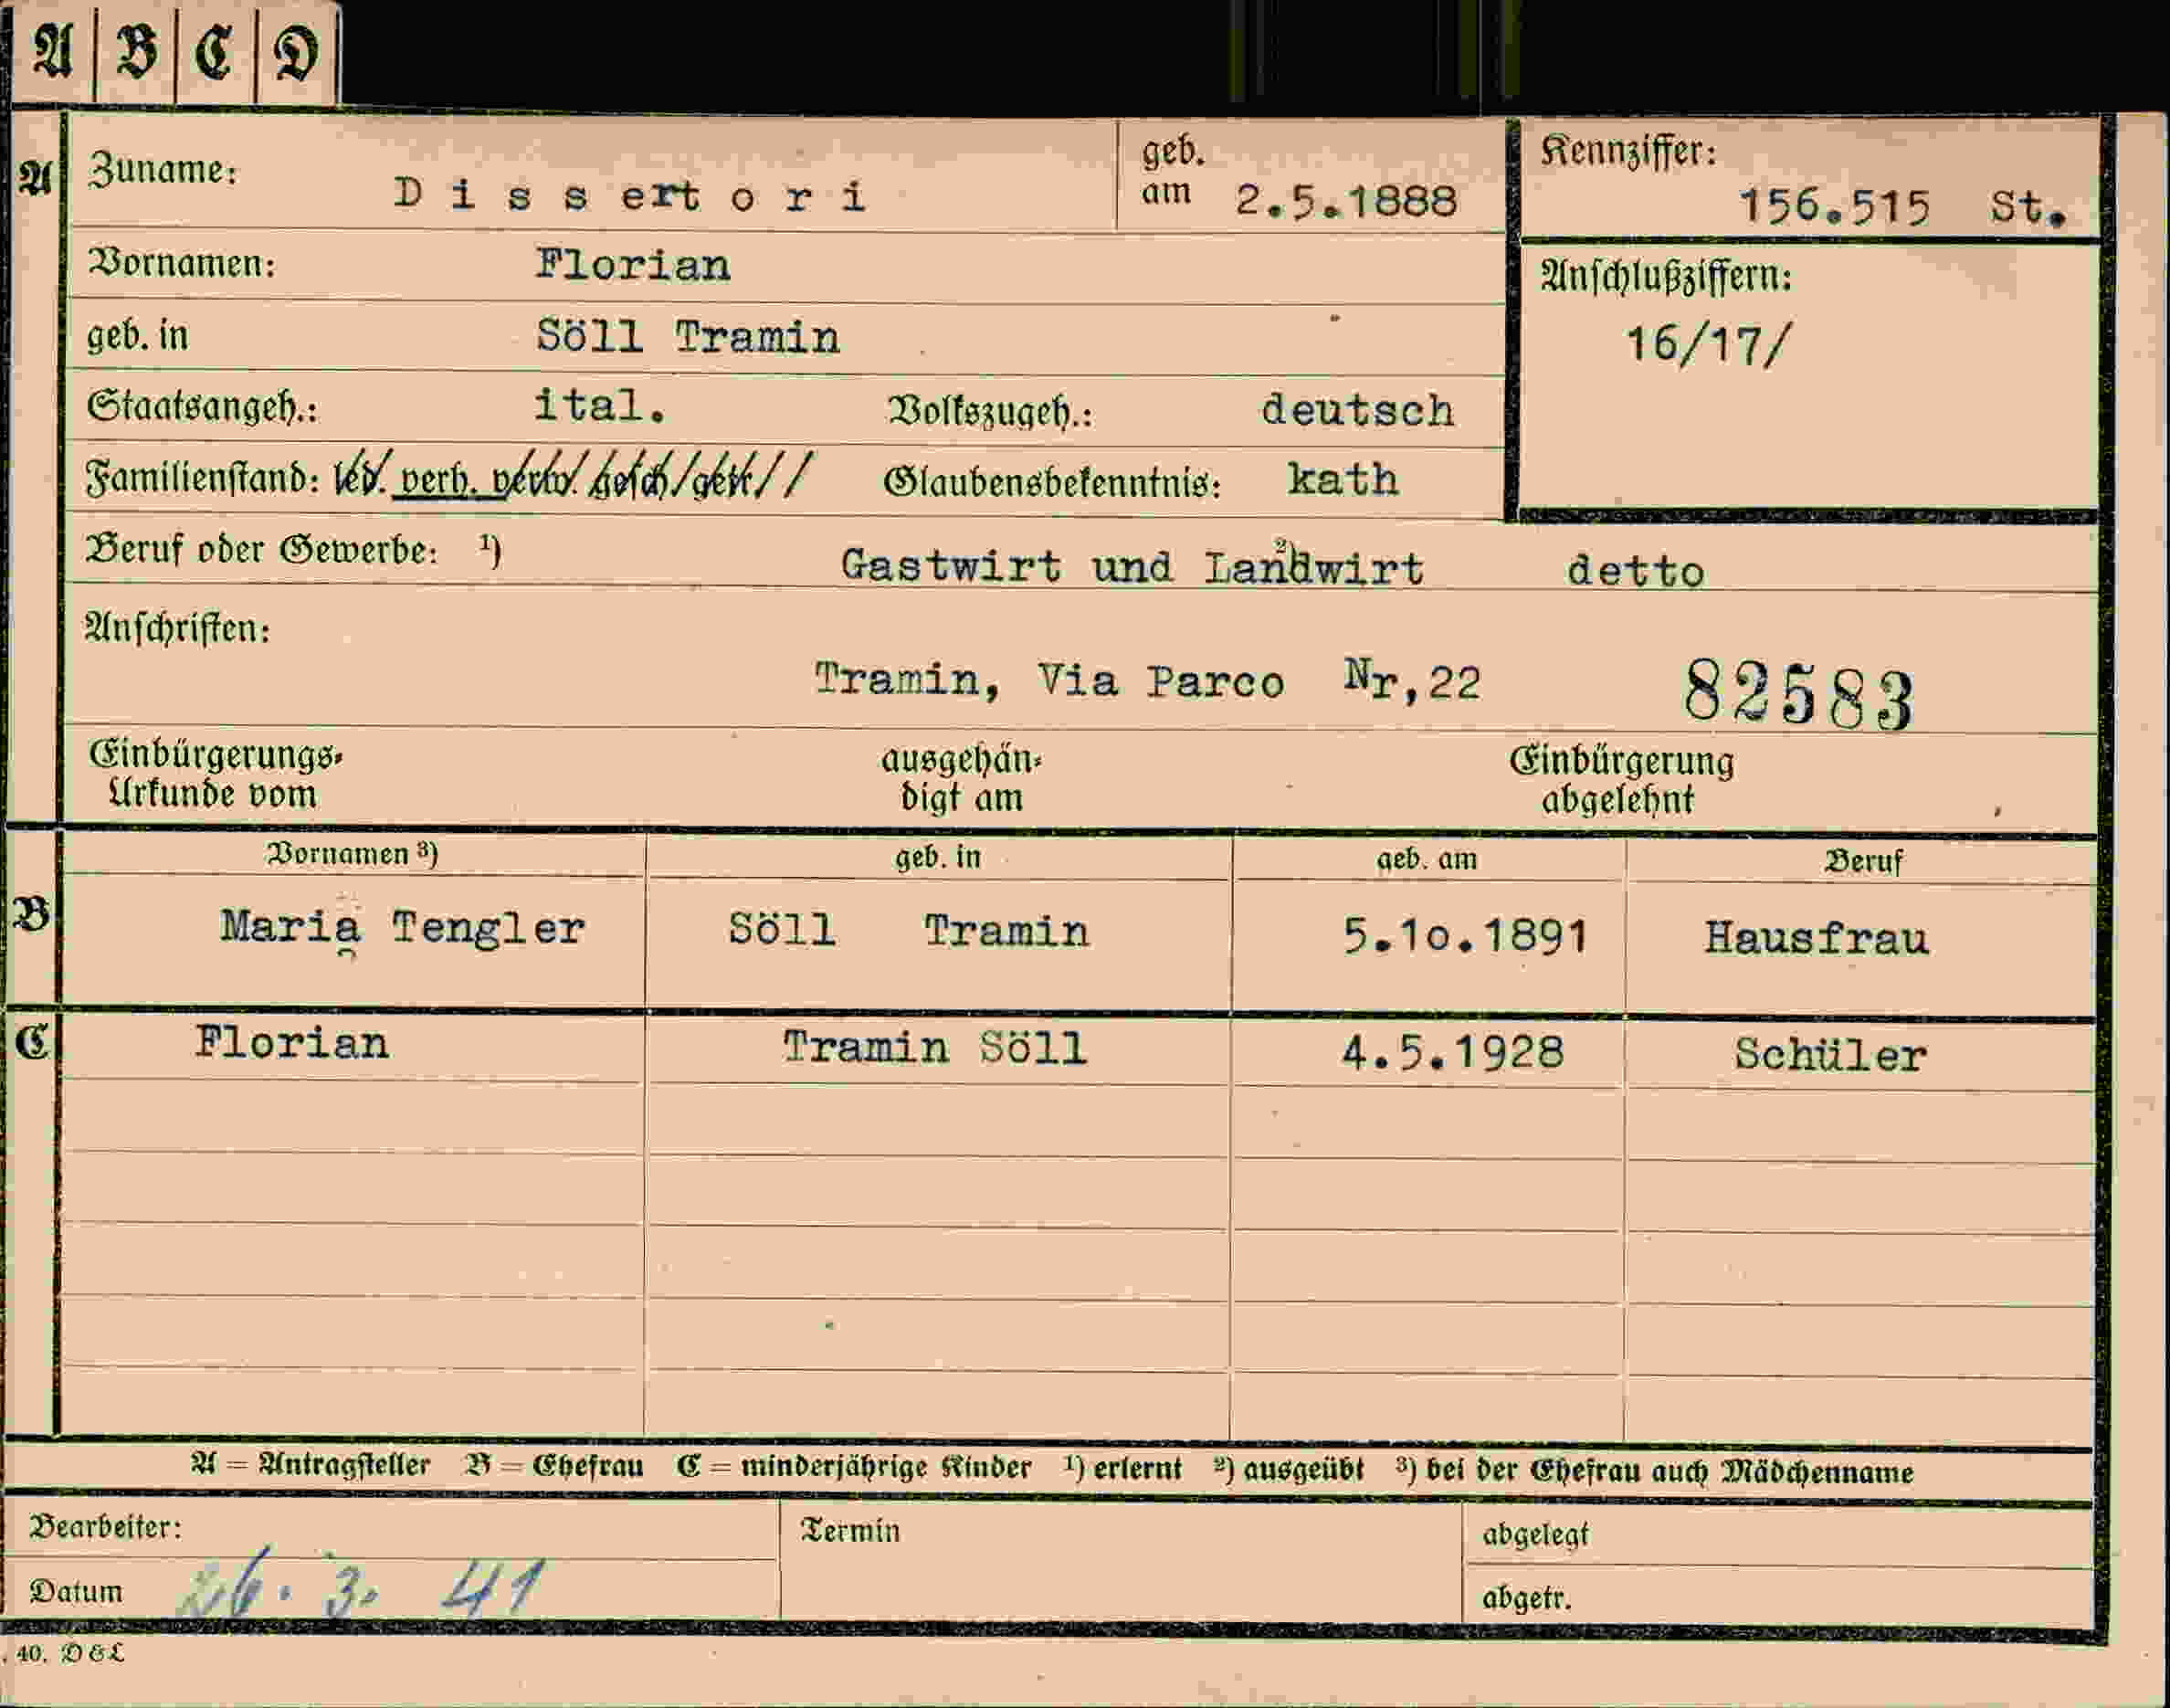 A B C D
A Zuname: Dissertori geb. am 2.5.1888 Kennziffer: 156.515 St.
Vornamen: Florian
geb. in Söll Tramin
Anschlußziffern: 16/17/
Staatsangeh.: ital. Volkszugeh.: deutsch
Familienstand: led. verh. verw. gesch. getr. Glaubensbekenntnis: kath
Beruf oder Gewerbe: ¹) Gastwirt und Landwirt ²) detto
Anschriften:
Tramin, Via Parco Nr,22 82583
Einbürgerungs-Urkunde vom ausgehän-digt am Einbürgerung abgelehnt
Vornamen ³) geb. in geb. am Beruf
B Maria Tengler Söll Tramin 5.1o.1891 Hausfrau
C Florian Tramin Söll 4.5.1928 Schüler
A = Antragsteller B = Ehefrau C = minderjährige Kinder ¹) erlernt ²) ausgeübt ³) bei der Ehefrau auch Mädchenname
Bearbeiter: Termin abgelegt
Datum 26. 3. 41 abgetr.
40. D & L